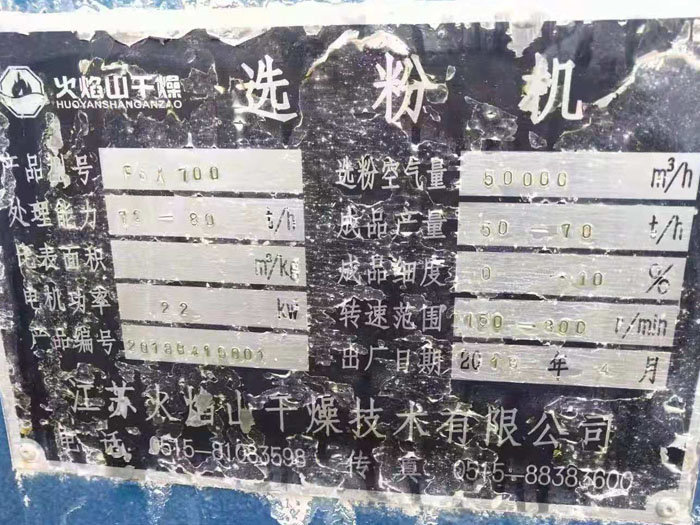 火焰山干燥
HUOYANSHANGANZAO
选粉机
产品型号 700 选粉空气量 50000 m³/h
处理能力 -80 t/h 成品产量 50-70 t/h
比表面积 m²/kg 成品细度 0 -10 %
电机功率 22 kw 转速范围 150-300 r/min
产品编号 出厂日期 201 年 4 月
江苏火焰山干燥技术有限公司
电话 0515-81083598 传真 0515-88383600